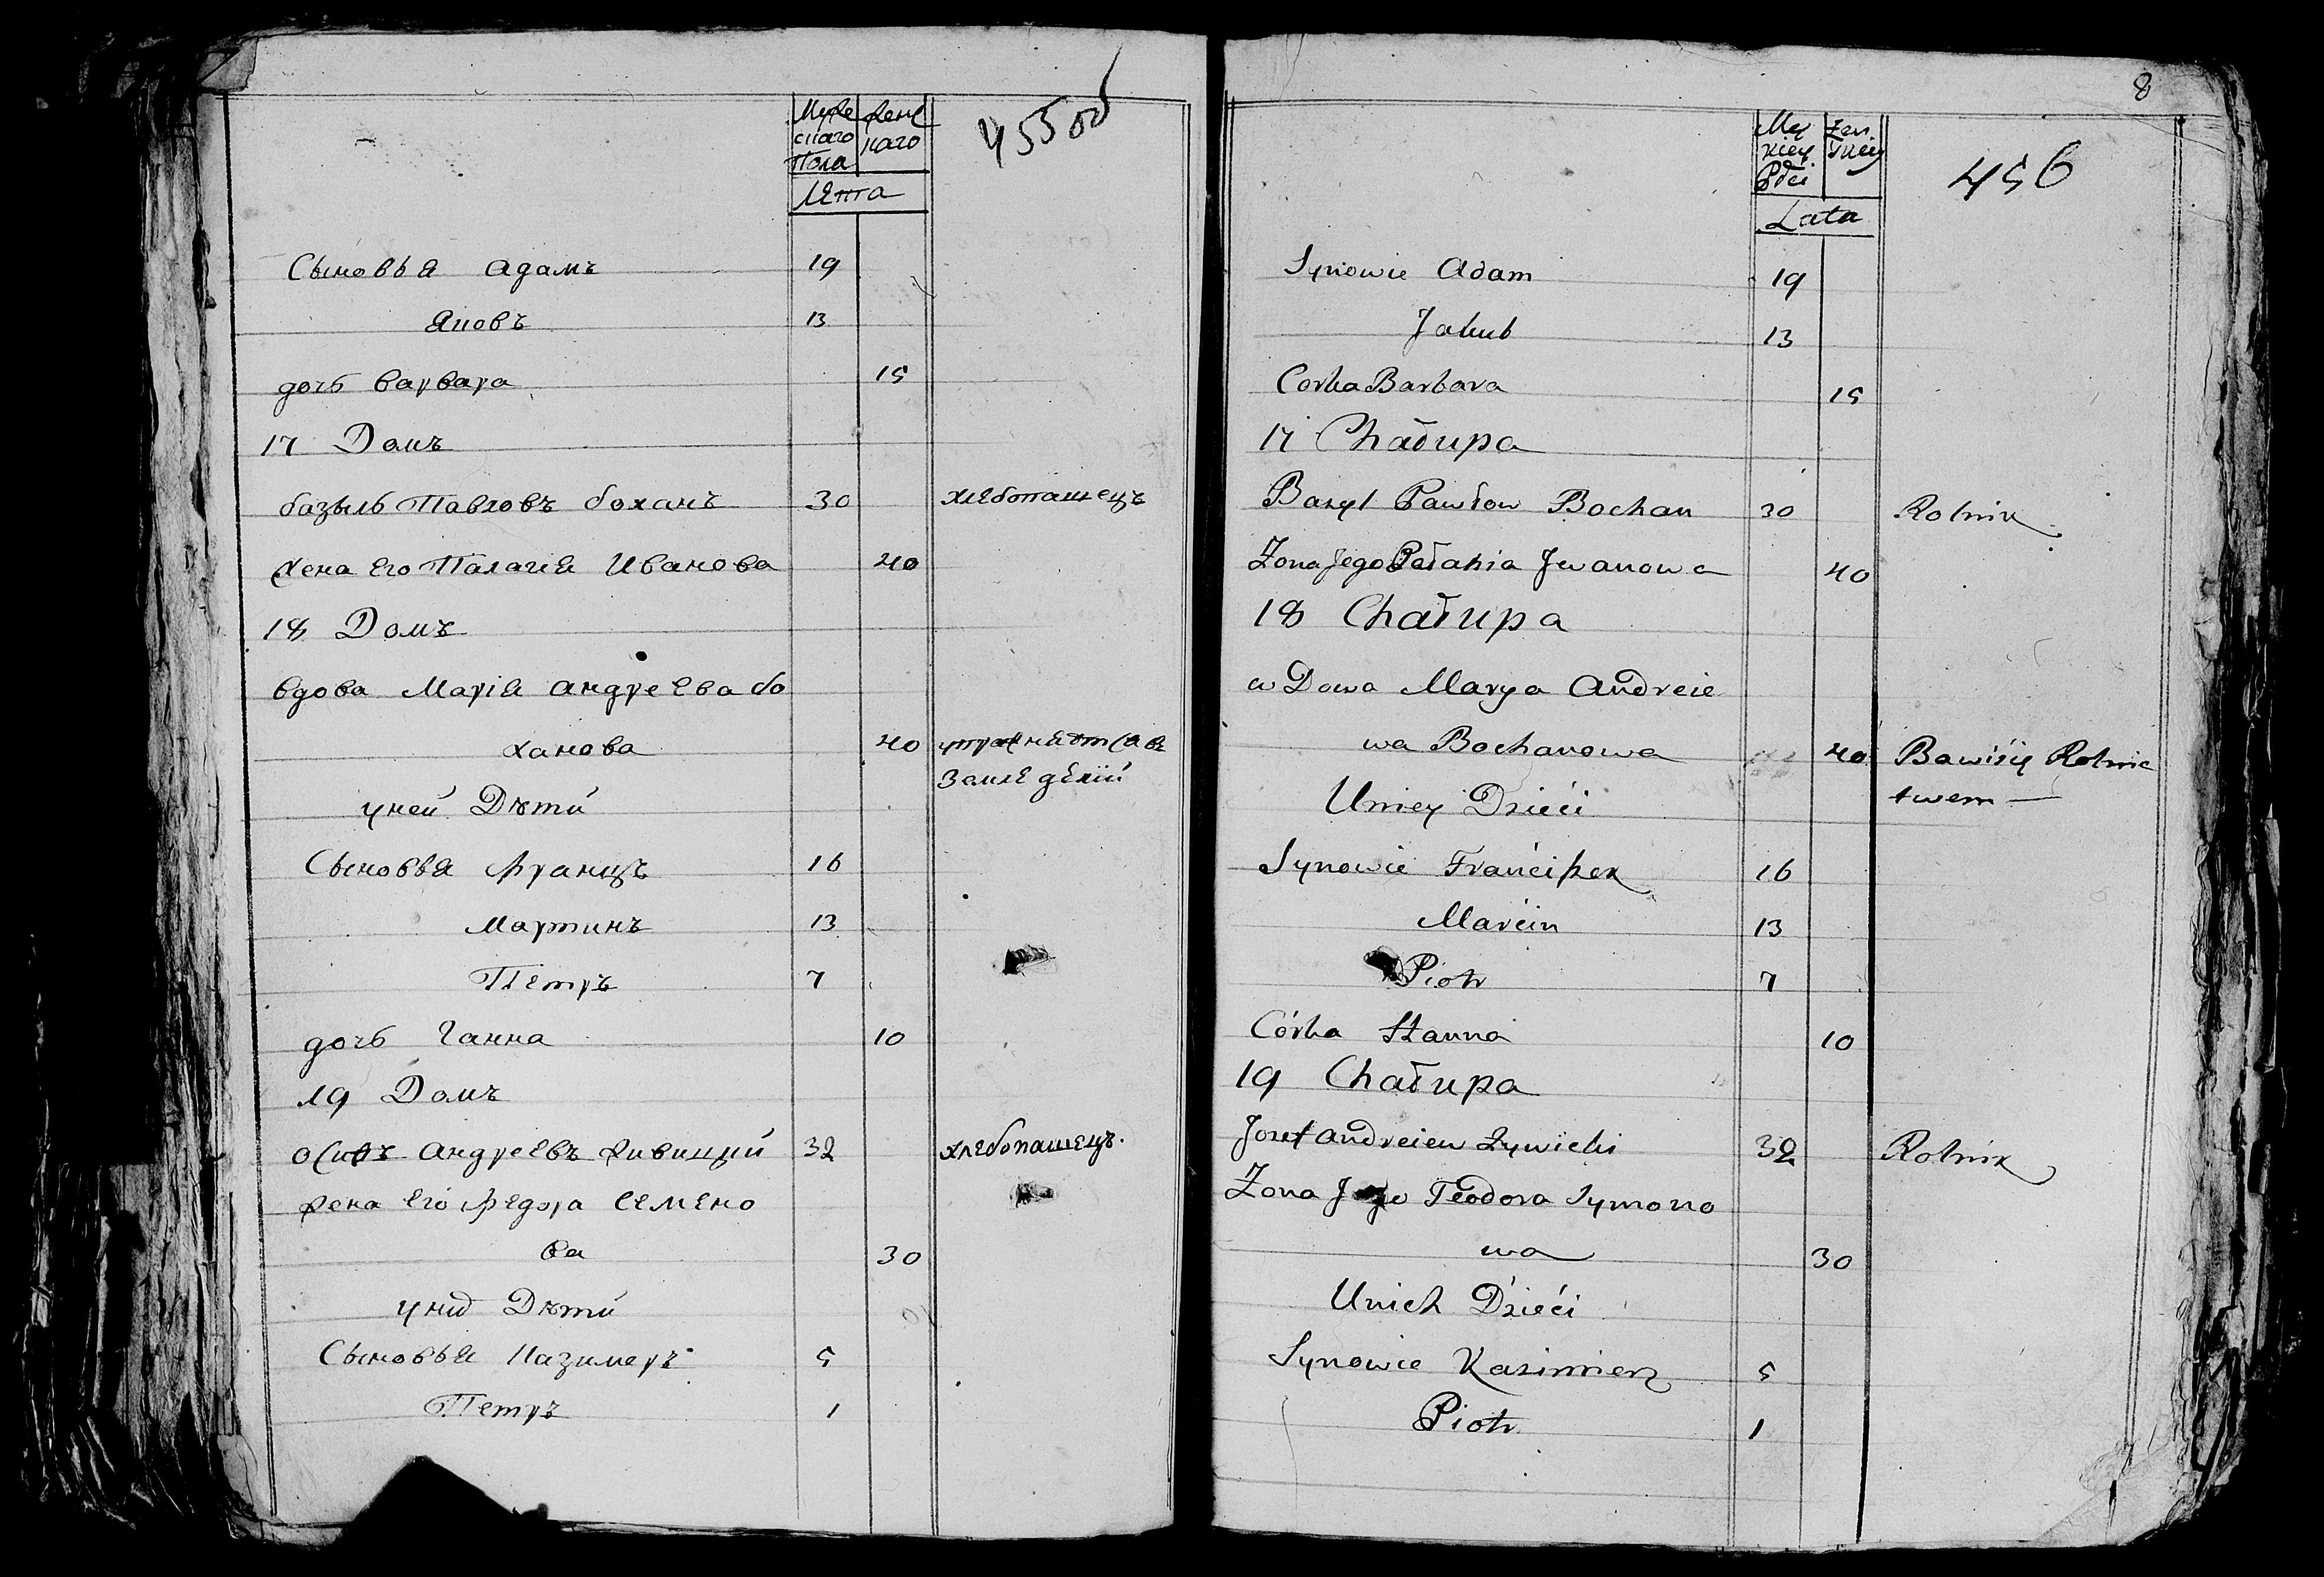 Муже женс
скаго каго
Пола
Лѣта
455 об
Сыновья Адамъ 19
Яковъ 13
дочь Варвара 15
17 Домъ
базыль Павловъ боханъ 30 хлебопашецъ
жена Его Палагея Иванова 40
18 Домъ
вдова Марія Андреева бо
ханова 40 упражняется въ
земледелїи
у ней Дѣти
Сыновья Францъ 16
Мартинъ 13
Петръ 7
дочь Ганна 10
19 Домъ
Осипъ Андреевъ живицкий 32 хлебопашецъ.
жена Его Федора Семено
ва 30
у них Дѣти
Сыновья Казимеръ 5
Петръ 1
8
Męż Żeń
kiey skiey
Płci
Lata
456
Synowie Adam 19
Jakub 13
Corka Barbara 15
17 Chałupa
Bazyl Pawłow Bochan 30 Rolnik
Zona Jego Pałahia Jwanowa 40
18 Chałupa
wDowa Marya Andreie
wa Bochanowa 40 Bawiśię Rolnic
twem —
Uniey Dzieći
Synowie Franćiszek 16
Marćin 13
Piotr 7
Córka Hanna 10
19 Chałupa
Jozef Andreiew Zywicki 32 Rolnik
Zona Jego Teodora Symono
wa 30
Unich Dzieći
Synowie Kazimierz 5
Piotr 1